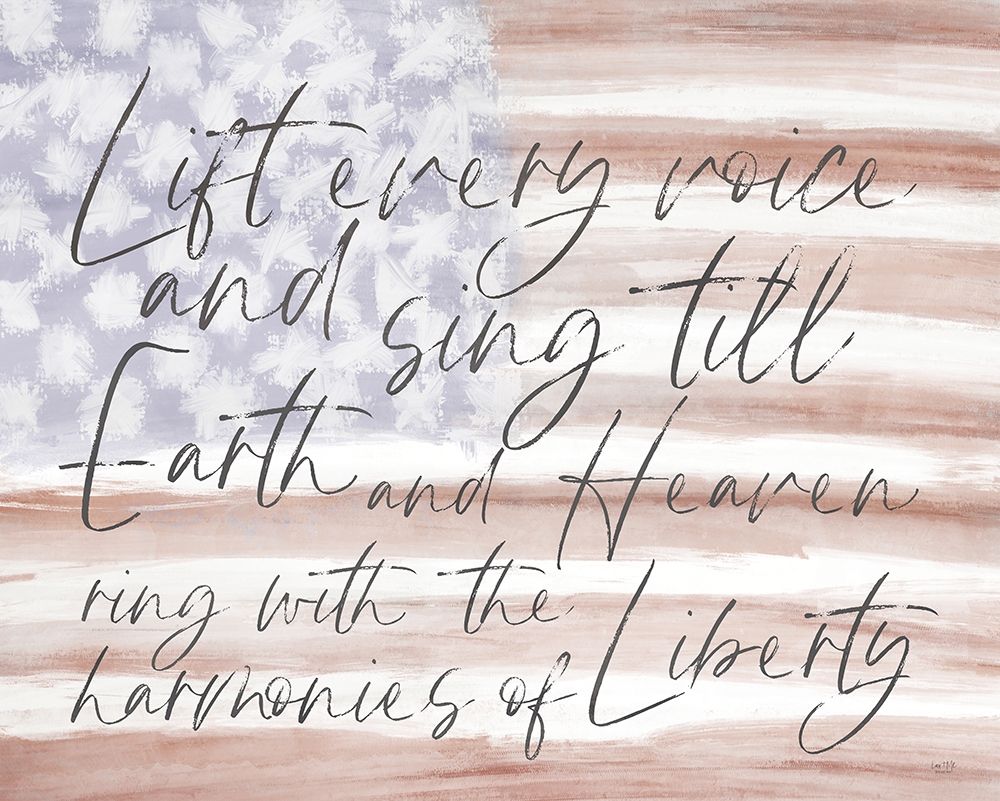 Lift every voice
and sing till
Earth and Heaven
ring with the
harmonies of Liberty